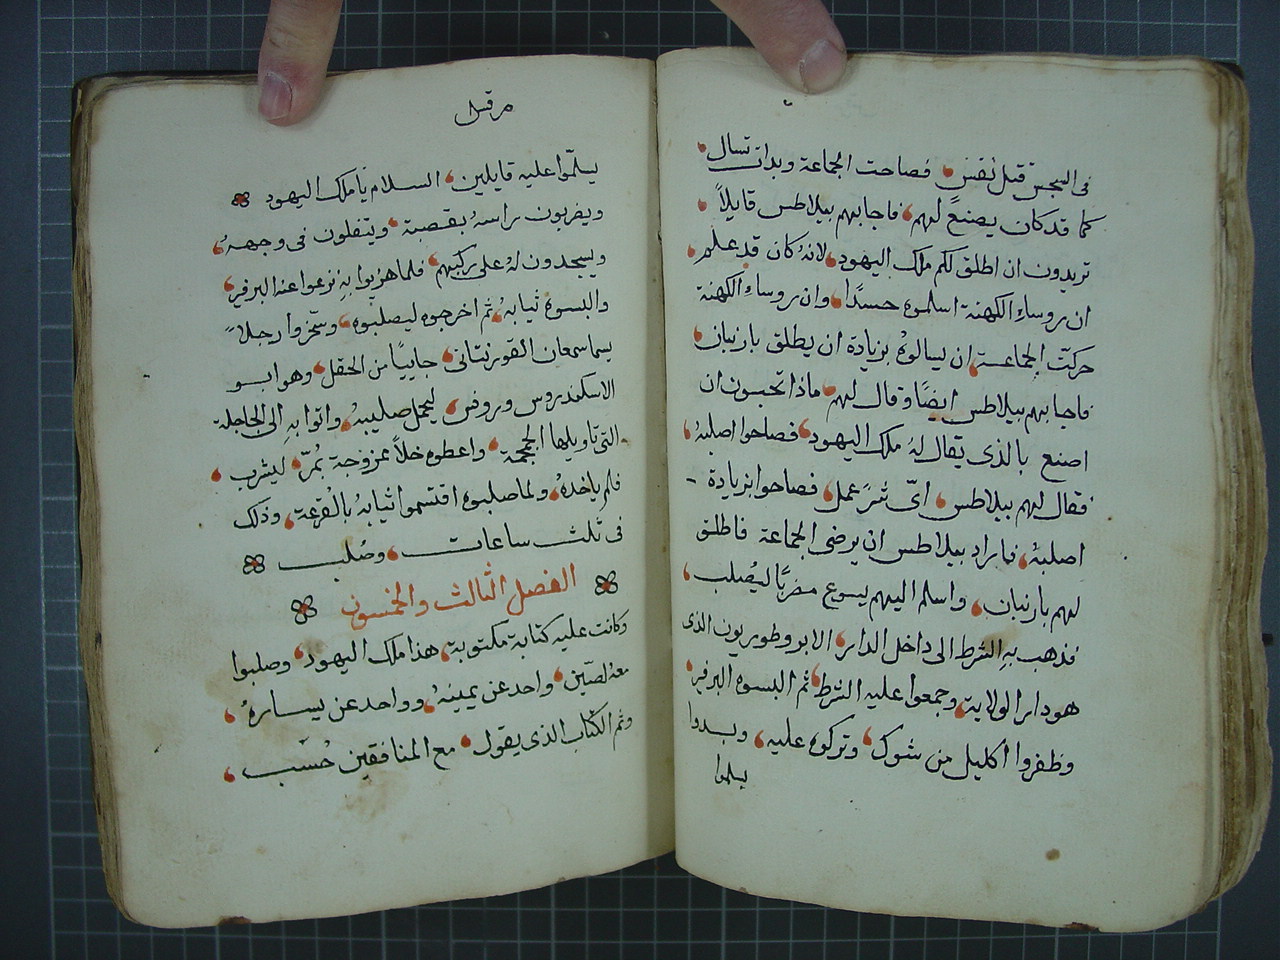 فى السجس قتل نفس، فصاحت الجماعة وبدات تسال
كما قد كان يصنع لهم، فاجابهم بيلاطس قايلاً
تريدون ان اطلق لكم ملك اليهود، لانهُ كان قد علم
ان روساء الكهنة اسلموه حسدًا، وان روساء الكهنة
حركت الجماعة، ان يسالوهُ بزيادة ان يطلق بارنبان
فاجابهم بيلاطس ايضًا وقال لهم، ماذا تحبون ان
اصنع بالذى يقال لهُ ملك اليهود، فصاحوا اصلبهُ
فقال لهم بيلاطس، اىّ شرّ عمل، فصاحوا بزيادة
اصلبهُ، فاراد بيلاطس ان يرضى الجماعة فاطلق
لهم بارنبان، واسلم اليهم يسوع مضربًا ليُصلب
فذهب بهِ الشرط الى داخل الدار، الابروطوريون الذى
هو دار الولاية، وجمعوا عليه الشرط، ثم البسوه البرفير
وظفروا اكليل من شوك، وتركوهُ عليه، وبدوا
يسلموا
مرقس
يسلّموا عليه قايلين، السلام يا ملك اليهود
ويضربون راسهُ بقصبة، ويتفلون فى وجههُ
ويسجدون لهُ على ركبهم، فلما هزيوا بهِ نزعوا عنه البرفير
والبسوهُ ثيابهُ، ثم اخرجوه ليصلبوه، وسخّروا رجلاً
يسما سمعان القورنتانى، جاييًا من الحقل، وهو ابو
الاسكندروس وروفس، ليحمل صليبهُ، واتوا بهِ الى الجاجلة
التى تاويلها الجمجمة، واعطوه خلاً ممزوجة بمُرّ، ليشرب
فلم ياخذهُ، ولما صلبوهُ اقتسموا ثيابهُ بالقرعة، وذلك
فى ثلث ساعات، وصُلب
الفصل الثالث والخمسون
وكانت عليه كتابة مكتوبة، هذا ملك اليهود، وصلبوا
معهُ لصّين، واحد عن يمينهُ، وواحد عن يسارهُ
وتم الكتاب الذى يقول، مع المنافقين حُسب